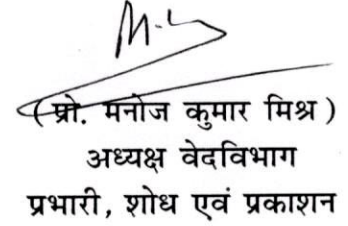 (प्रो. मनोज कुमार मिश्र)
अध्यक्ष वेदविभाग
प्रभारी, शोध एवं प्रकाशन